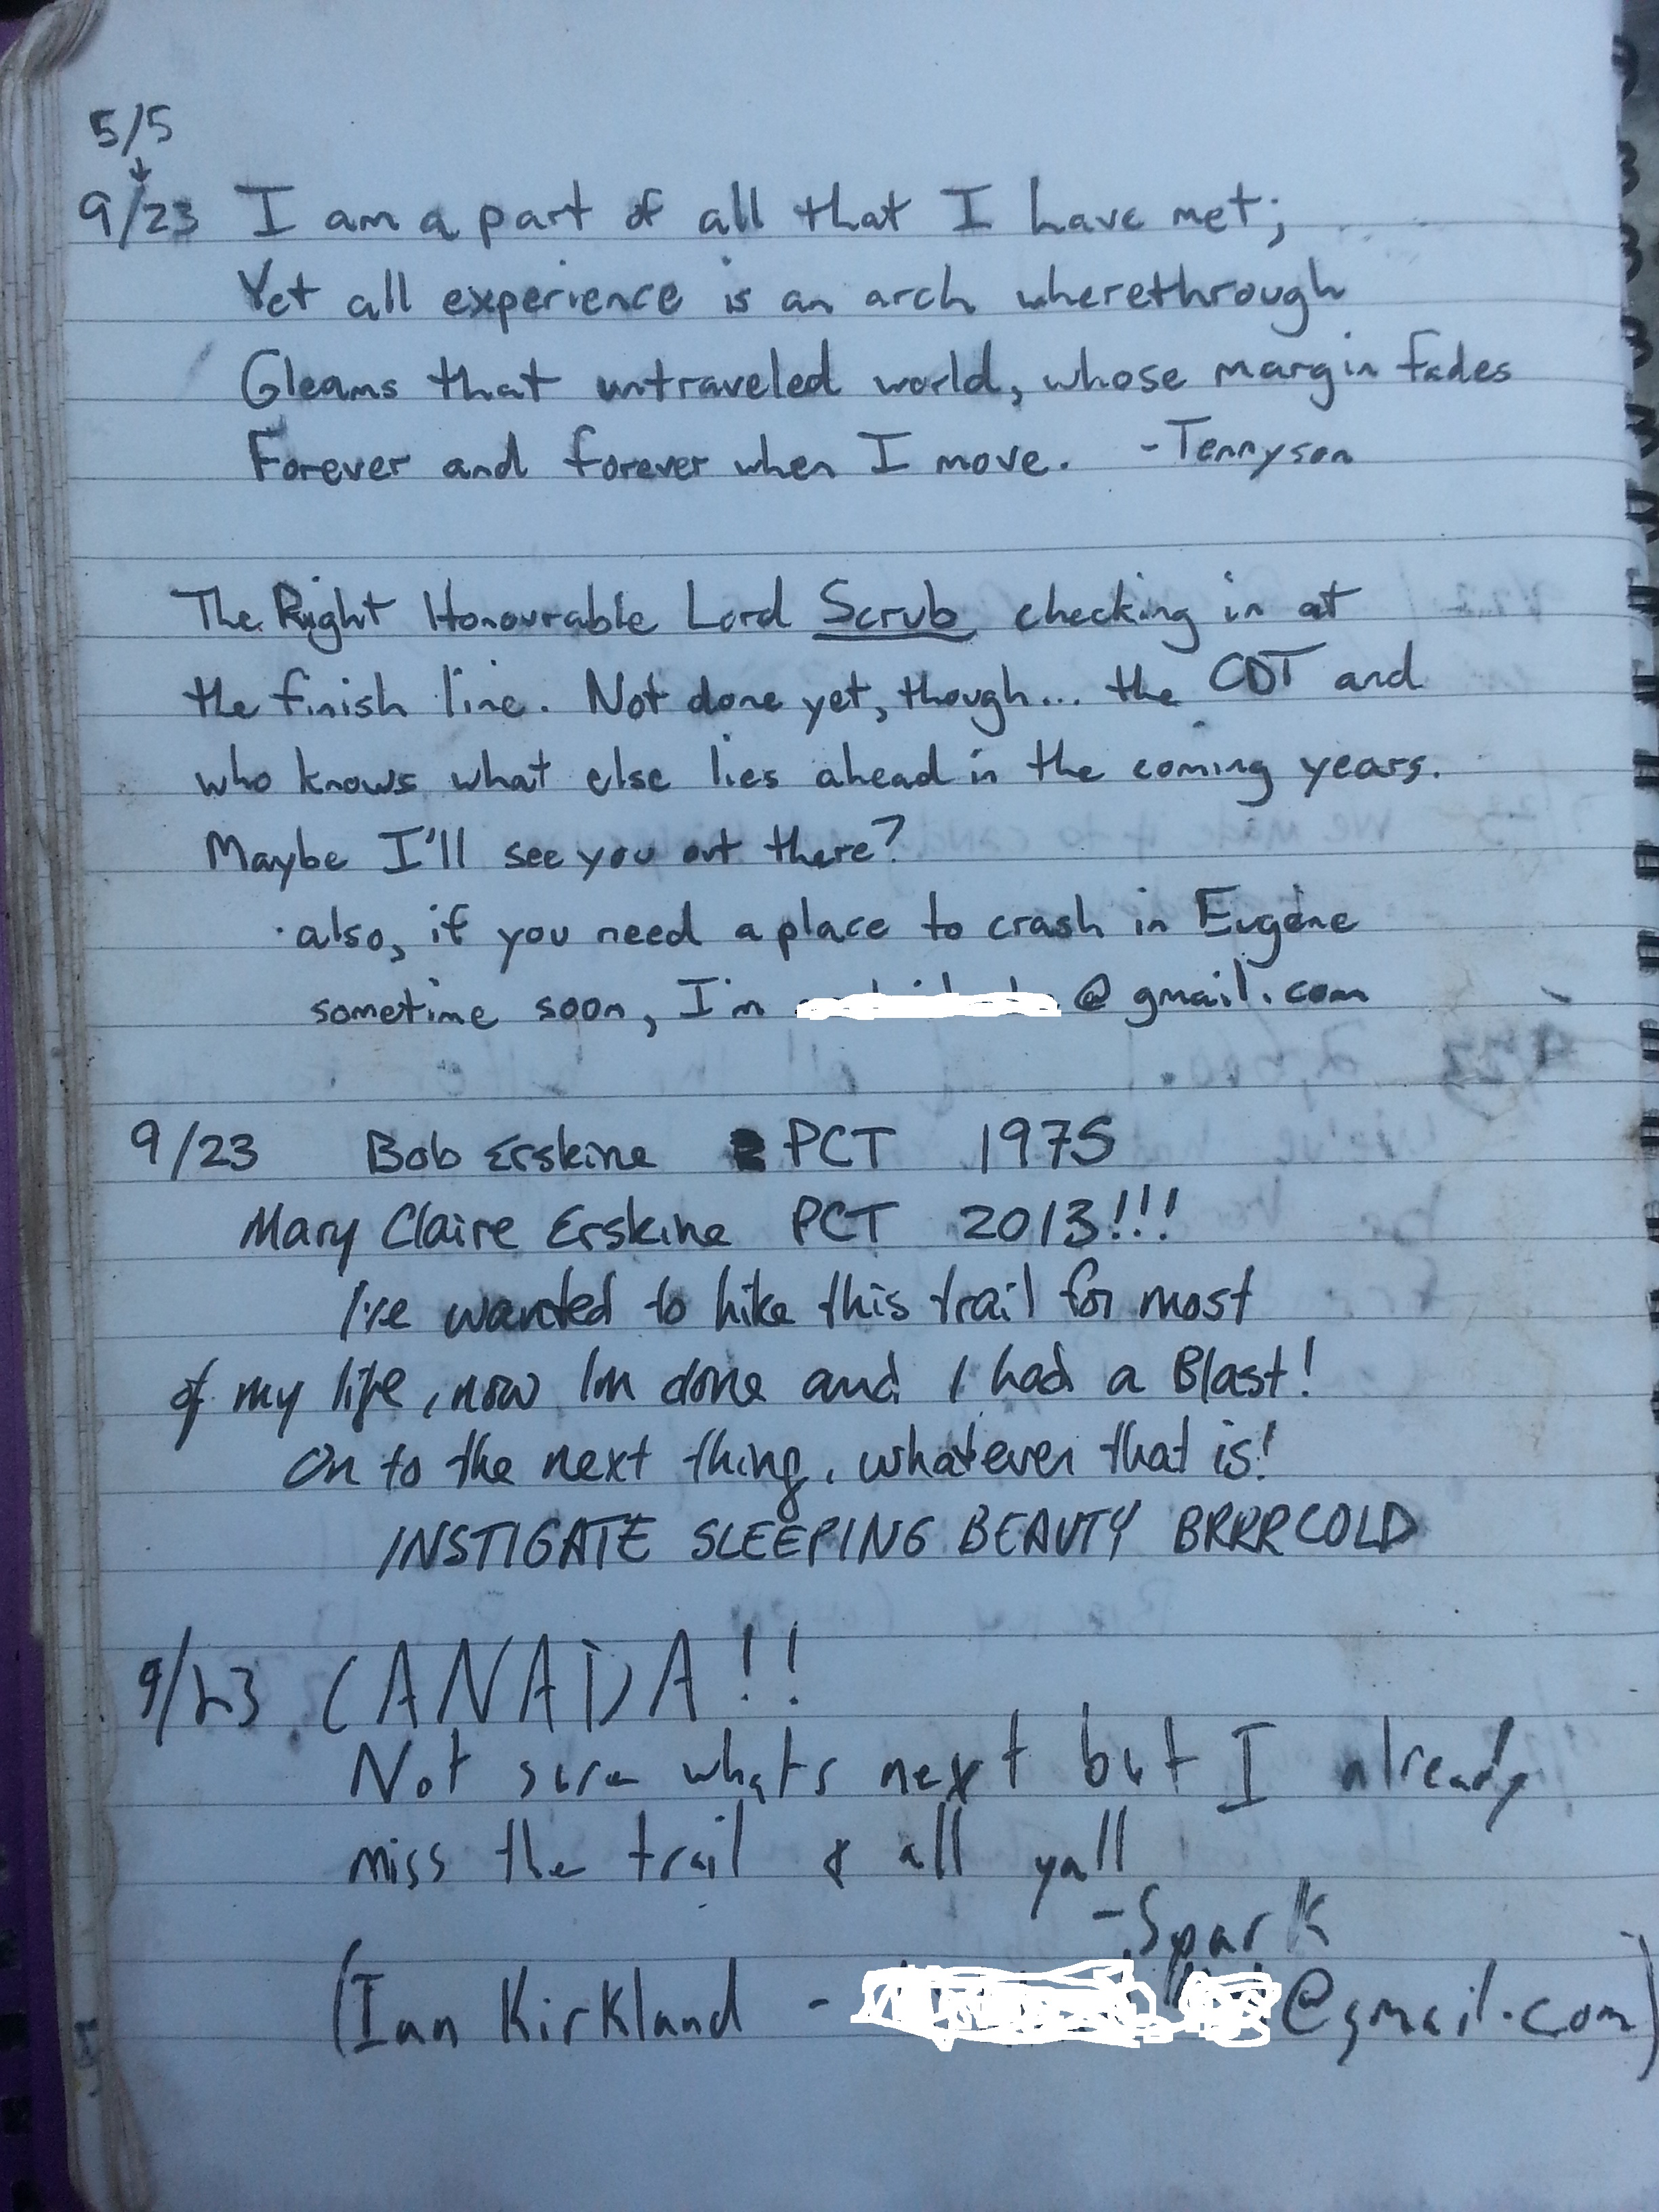 5/5
↓
9/23 I am a part of all that I have met;
Yet all experience is an arch wherethrough
Gleams that untraveled world, whose margin fades
Forever and forever when I move. -Tennyson
The Right Honourable Lord Scrub checking in at
the finish line. Not done yet, though... the CDT and
who knows what else lies ahead in the coming years.
Maybe I'll see you out there?
also, if you need a place to crash in Eugene
sometime soon, I'm @gmail.com
9/23 Bob Erskine PCT 1975
Mary Claire Erskine PCT 2013!!!
I've wanted to hike this trail for most
of my life, now Im done and I had a Blast!
On to the next thing, whatever that is!
INSTIGATE SLEEPING BEAUTY BRRRCOLD
9/23 CANADA!!
Not sure whats next but I already
miss the trail & all yall
-Spark
(Ian Kirkland - @gmail.com)